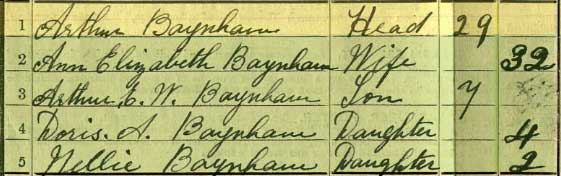 1 Arthur Baynham Head 29
2 Ann Elizabeth Baynham Wife 32
3 Arthur E. W. Baynham Son 7
4 Doris. A. Baynham Daughter 4
5 Nellie Baynham Daughter 2